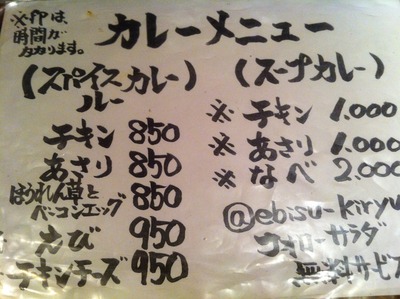 ※印は、
時間が
かかります。
カレーメニュー
(スパイスカレー)
ルー
チキン 850
あさり 850
ほうれん草と
ベーコンエッグ 850
えび 950
チキンチーズ 950
(スープカレー)
※ チキン 1.000
※ あさり 1.000
※ なべ 2.000
@ebisu-kiryu
フォローサラダ
無料サービス